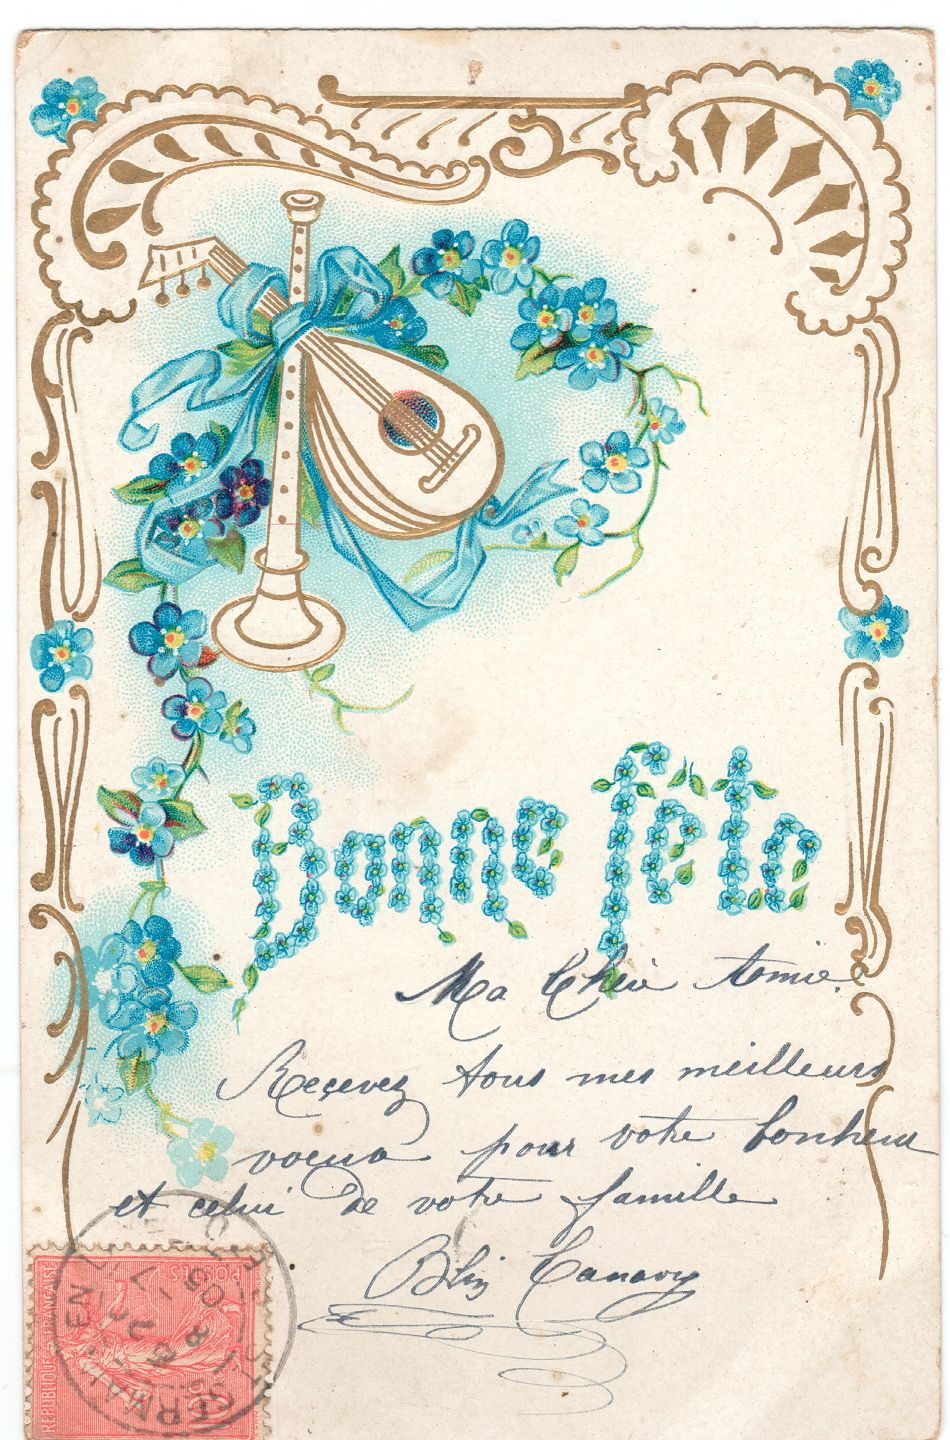 Bonne fête
Ma Chère Amie
Recevez tous mes meilleurs
voeux pour votre bonheur
et celui de votre famille
REPUBLIQUE FRANÇAISE
POSTES